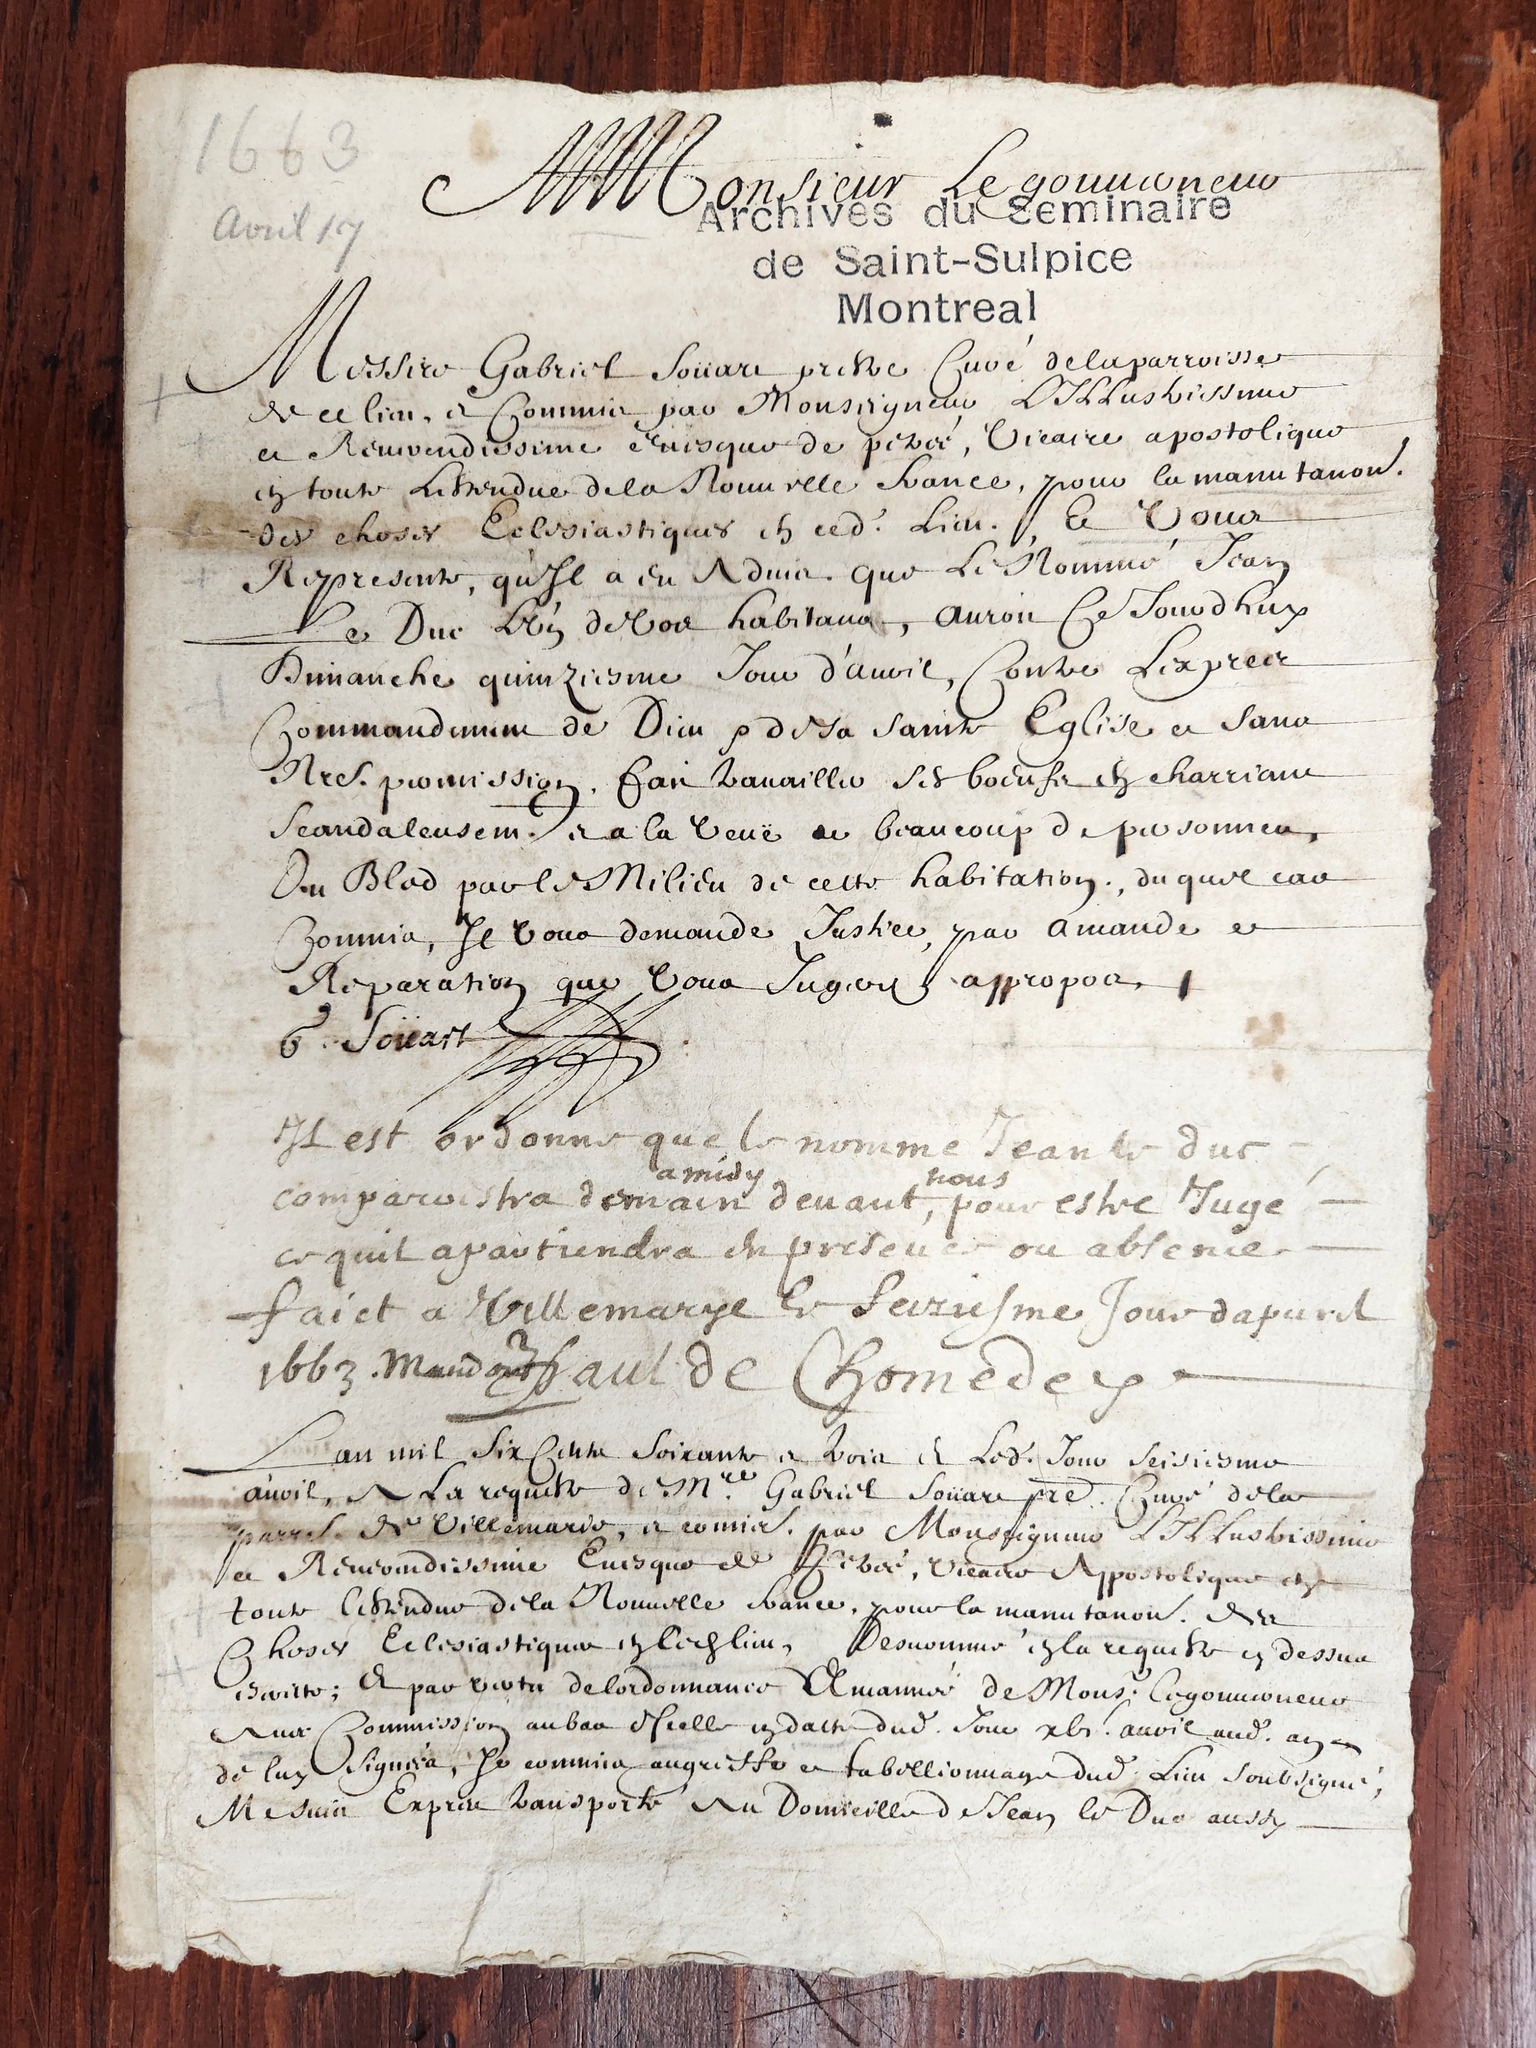 1663
Avril 17
A Monsieur Le gouuerneur
Archives du Seminaire
de Saint-Sulpice
Montreal
Messire Gabriel Soüart prestre Curé delaparroisse
de ce lieu, et Commis par Monseigneur L'Illustrissime
et Reuerendissime euesque de petrée, Vicaire apostolique
en toute Lestendue dela Nouuelle france, pour la manutanon.
des choses Eclesiastiques en ced. Lieu. Et Vous
Represente, qu'Il a eu Aduis que Le Nommé Jean
Le Duc L'un de Vos habitans, auroit Ce Jourdhuy
Dimanche quinziesme Jour d'auril, Contre Lexprès
Commandement de Dieu & de sa sainte Eglise et sans
Nre. permission, fait trauailler ses boeufs en charriant
scandaleusemt. et a la Veuë de beaucoup de personnes,
Du Bled par le Milieu de cette habitation, duquel cas
Commis, Il Vous demande Justice, par amande et
Reparation que Vous Jugerez appropos,
G. Soüart
Il est ordonne que le nomme Jean le duc
comparoistra demain amidy deuant nous, pour estre Jugé
ce quil apartiendra en presence ou absence
faict a Villemarye le seiziesme Jour dapuril
1663. Paul de Chomedey
Lan mil six Cents soixante et trois et Led. Jour seisiesme
auril, A La requeste de Mre. Gabriel Soüart pre. Curé dela
parre. de Villemarie, et comis. par Monseigneur L'Illustrissime
et Reuerendissime Euesque de Petrée, Vicaire Appostolique en
toute lestendue dela Nouuelle france, pour la manutanon. des
Choses Eclesiastiques en Ced. lieu, Desnommé en la requeste cy dessus
escritte; Et par vertu delordonnance Emannée de Monsr. Legouuerneur
Aux Commission aubas dIcelle en datte dud. Jour xbi. auril aud. an
de luy signéé, Je commis augreffe et tabellionnage dud. Lieu soubsigné,
Me suis Exprès transporté Au Domicille de Jean le Duc aussy